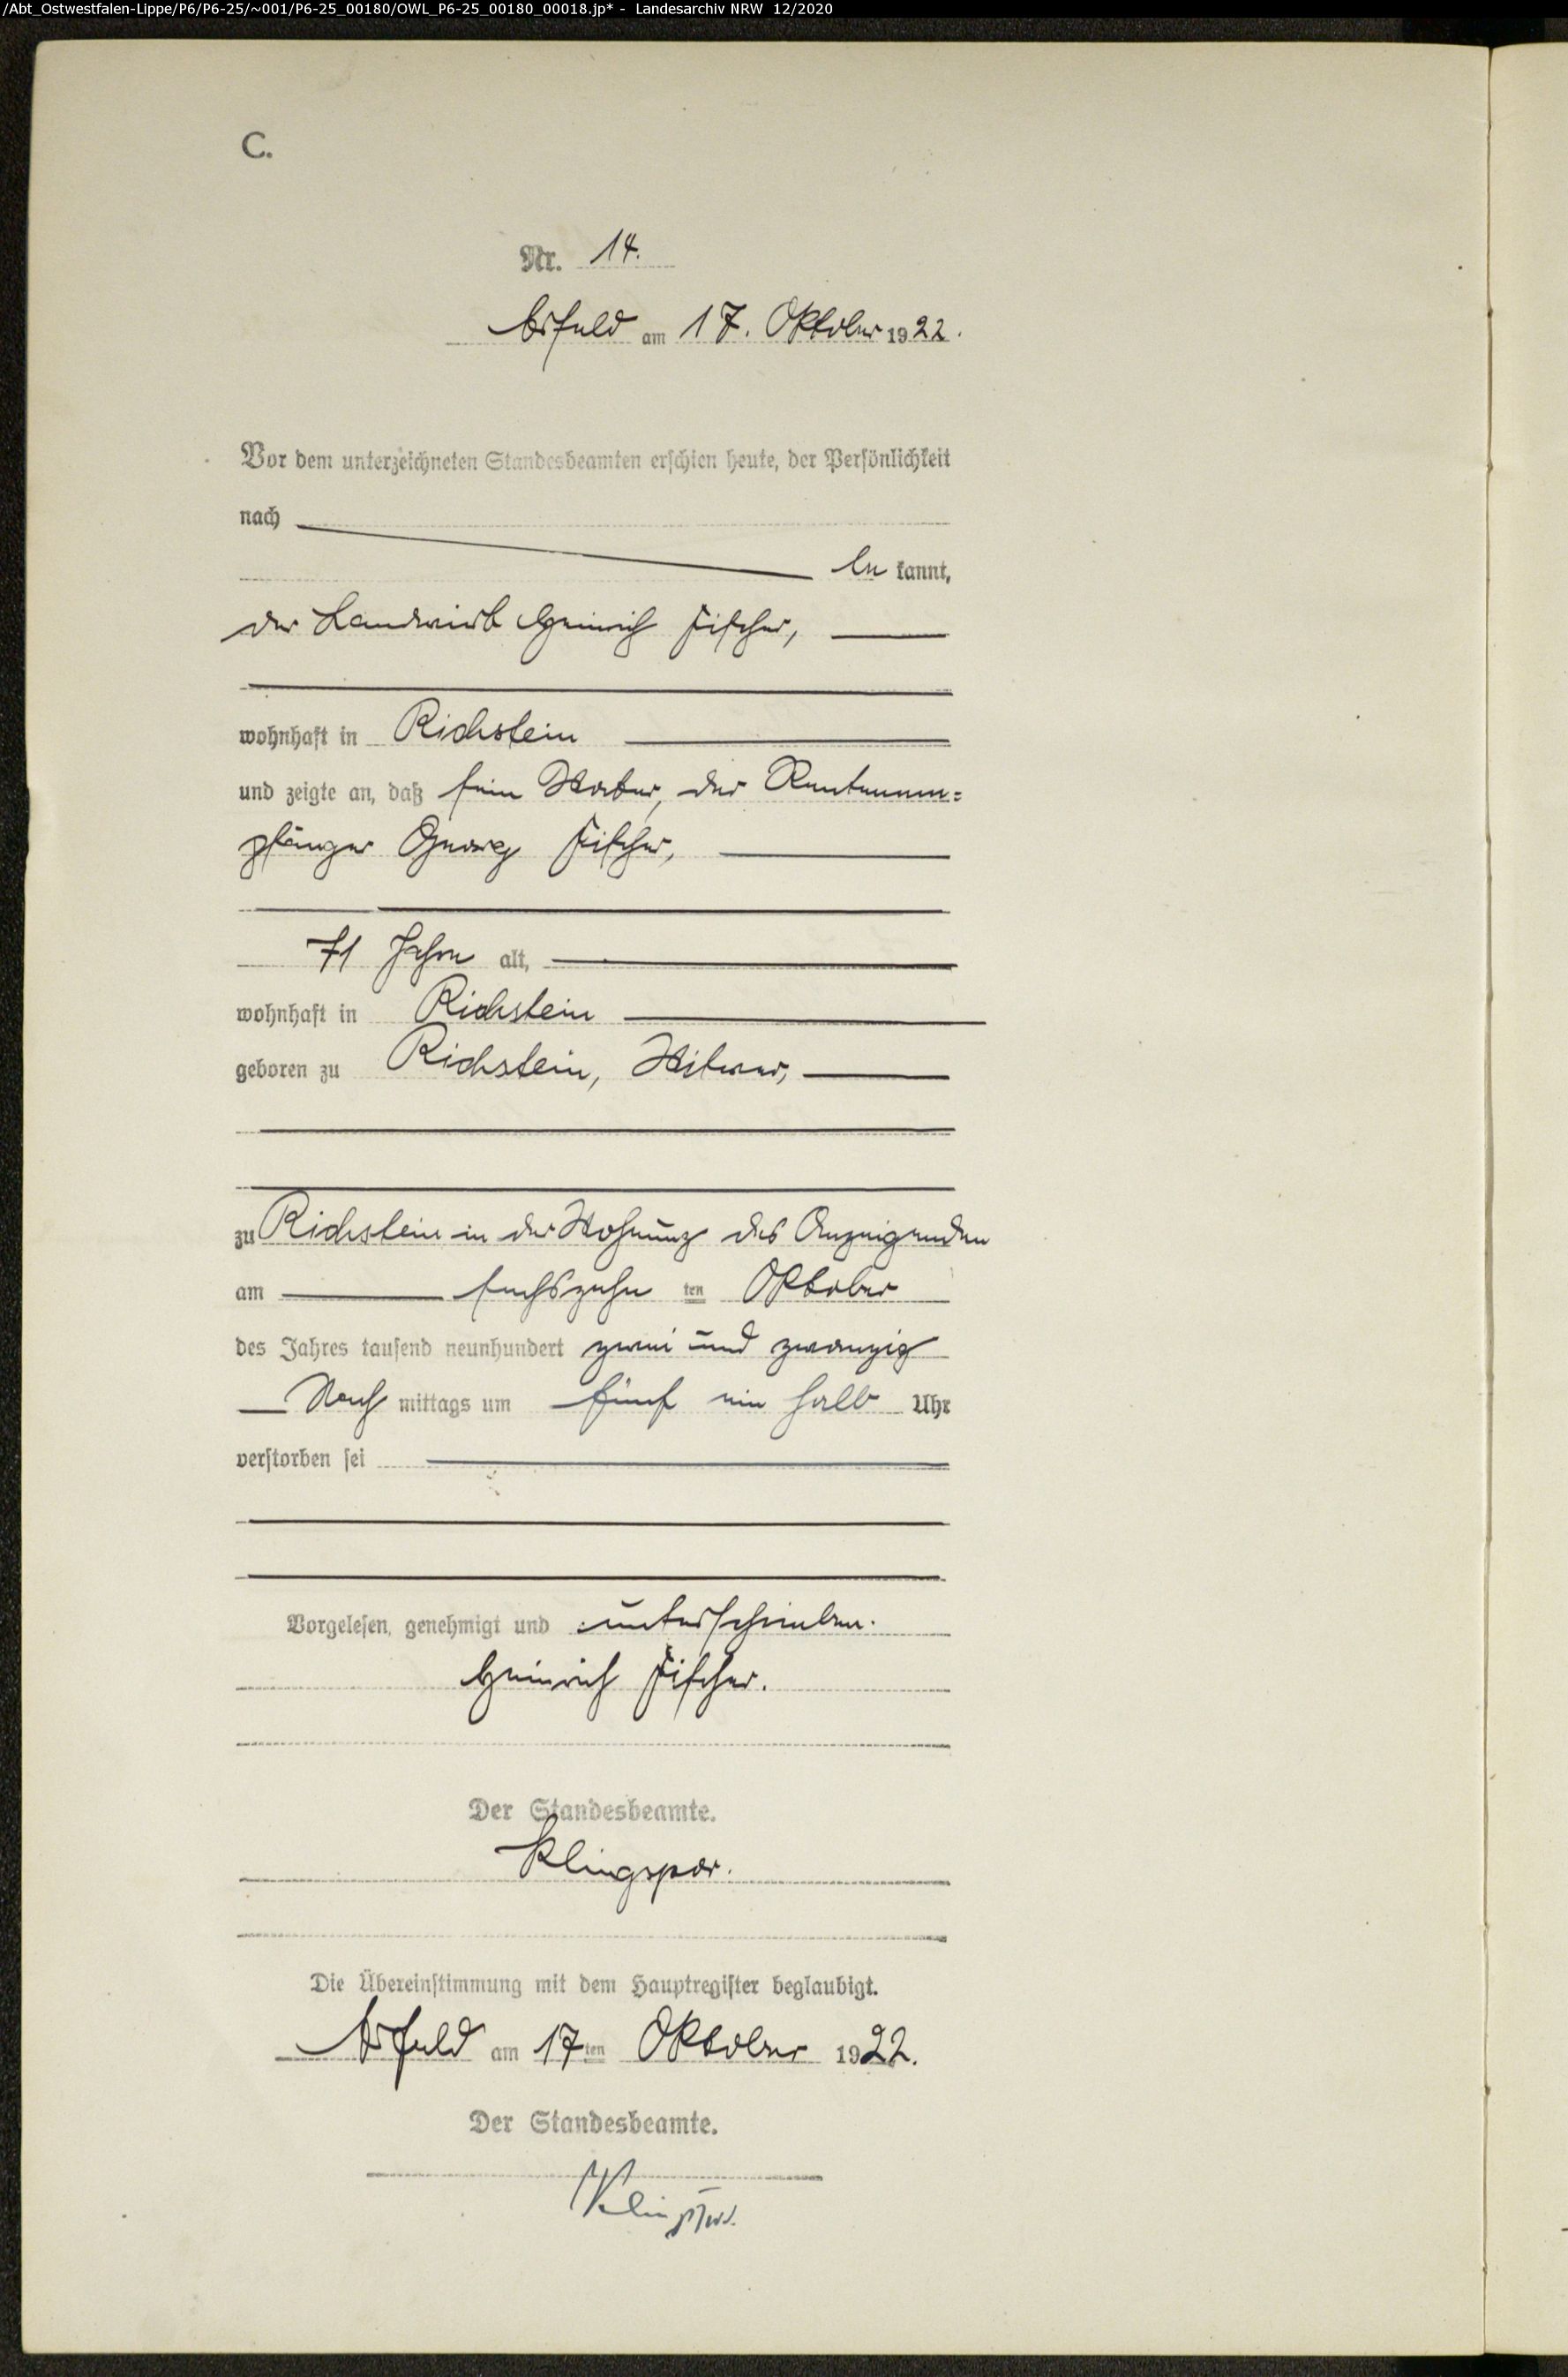 /Abt_Ostwestfalen-Lippe/P6/P6-25/~001/P6-25_00180/OWL_P6-25_00180_00018.jp* - Landesarchiv NRW 12/2020
C.
Nr. 14.
Arfeld am 17. Oktober 1922.
Vor dem unterzeichneten Standesbeamten erschien heute, der Persönlichkeit
nach
be kannt,
der Landwirt Heinrich Fischer,
wohnhaft in Richstein
und zeigte an, daß sein Vater, der Rentenem=
pfänger Georg Fischer,
71 Jahre alt,
wohnhaft in Richstein
geboren zu Richstein, Witwer,
zu Richstein in der Wohnung des Anzeigenden
am sechszehn ten Oktober
des Jahres tausend neunhundert zwei und zwanzig
Nach mittags um fünf ein halb Uhr
verstorben sei
Vorgelesen, genehmigt und unterschrieben.
Heinrich Fischer.
Der Standesbeamte.
Klingspor.
Die Übereinstimmung mit dem Hauptregister beglaubigt.
Arfeld am 17ten Oktober 1922.
Der Standesbeamte.
Klingspor.